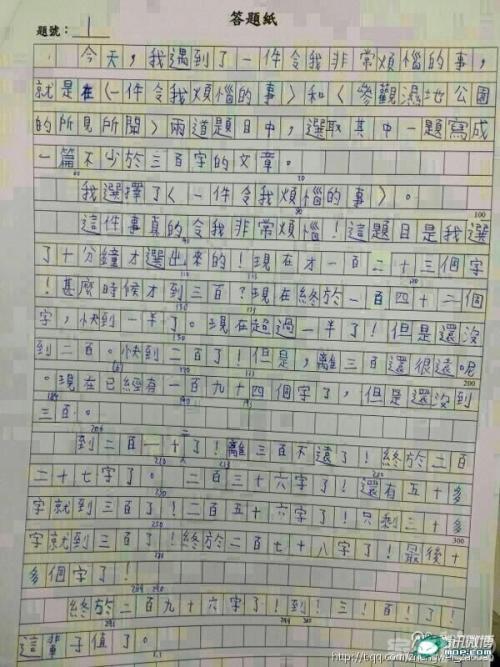 答題紙
題號：1
今天，我遇到了一件令我非常煩惱的事，
就是在〈一件令我煩惱的事〉和〈參觀濕地公園
的所見所聞〉兩道題目中，選取其中一題寫成
一篇不少於三百字的文章。
我選擇了〈一件令我煩惱的事〉。
100
這件事真的令我非常煩惱！這題目是我選
了十分鐘才選出來的！現在才一百二十三個字
！甚麼時候才到三百？現在終於一百四十二個
字，快到一半了。現在超過一半了！但是還沒
到二百。快到二百了！但是，離三百還很遠呢
200
。現在已經有一百九十四個字了，但是還沒到
三百。
到二百一十了！離三百不遠了！終於二百
二十七字了。二百三十六字了！還有五十多
字就到三百了！二百五十六字了！只剩三十多
300
字就到三百了！終於二百七十八字了！最後十
多個字了！
終於二百九十六字了！到！三！百！了！
這輩子值了。
腾讯微博
mop.com